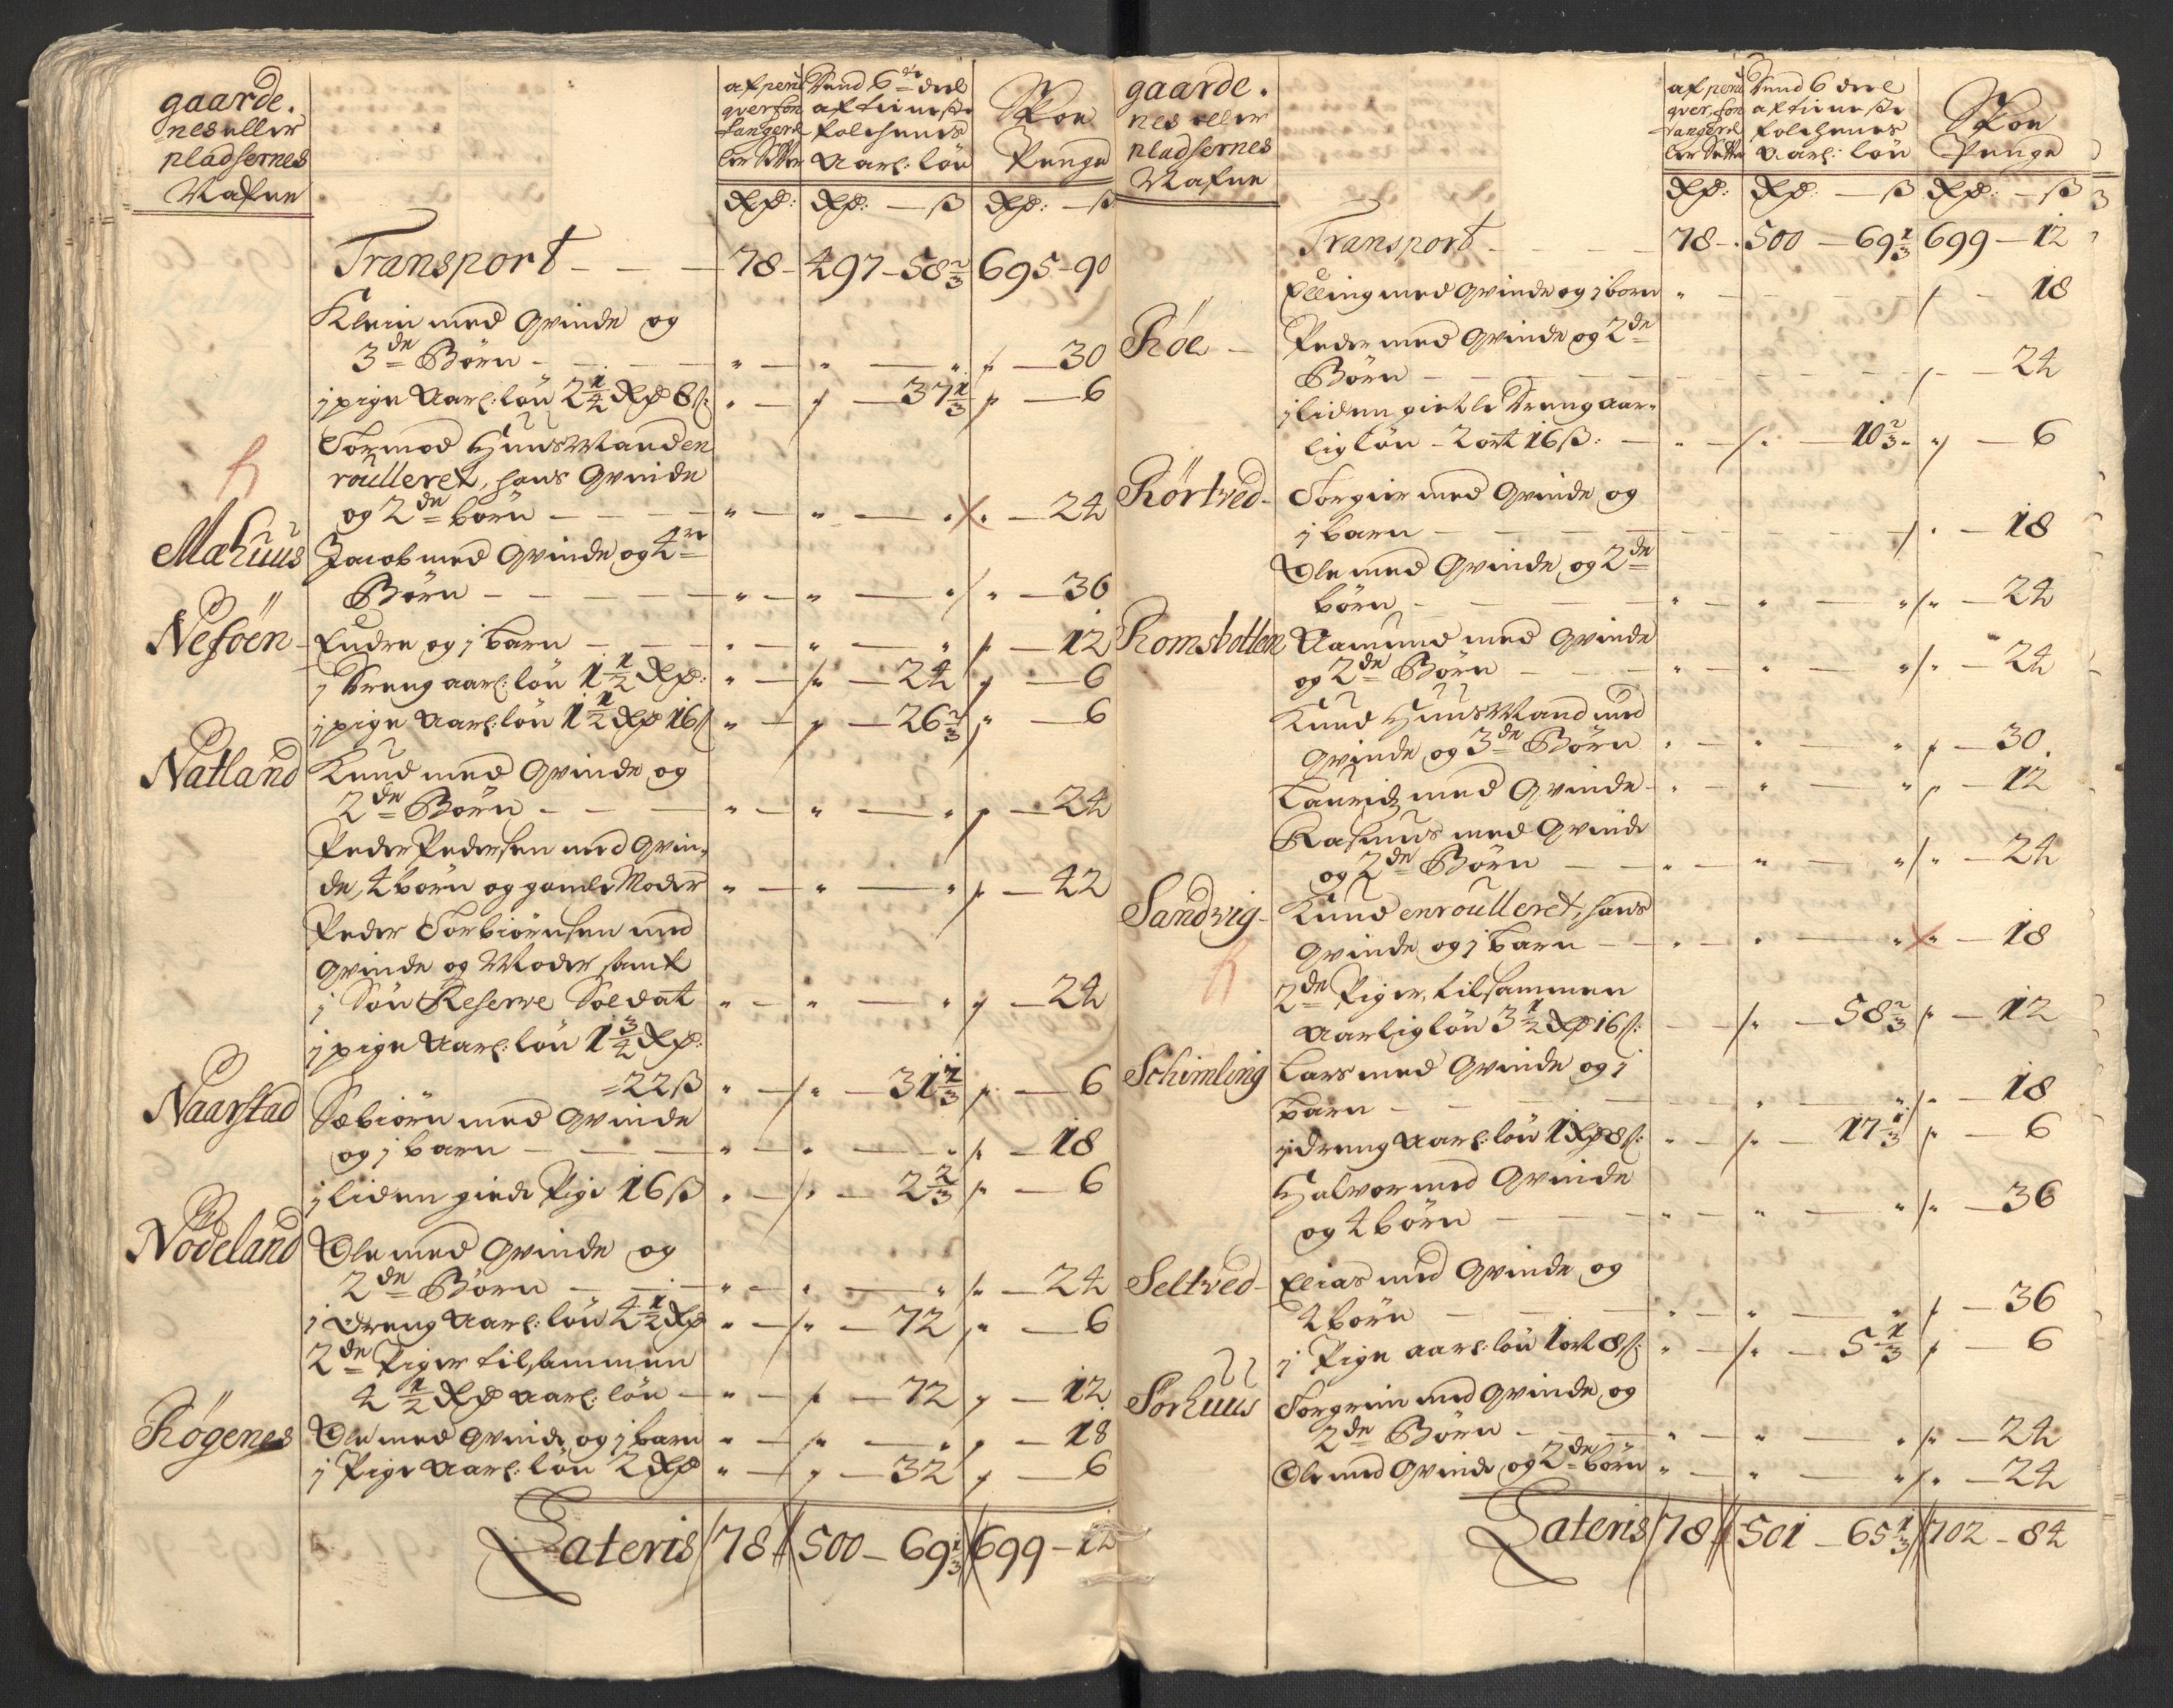 gaarde.
nes eller
pladsernes
Nafne
Sind 6te deel
af tieneste
folchenes
Aarl: løn
Skoe
Penge
Rdr: Rdr: — ß Rdr: — ß
Transport — — — 78 — 497 — 58 2/3 695 — 90
Klein med Qvinde og
3de Børn — — — " — " — " — 30
j pige Aarl: løn 2 1/4 Rdr 8 ß: " — " — 37 1/3 " — 6
Tormod Huusmand en
roulleret, hans Qvinde
og 2de børn — — — " — " — " — 24
Mæhuus Jacob med Qvinde og 4re
Børn — — — " — " — " — 36
Nesøen — Endre og j barn — — " — " — " — 12
j dreng aarl: løn 1 1/2 Rdr: " — " — 24 " — 6
j pige Aarl: løn 1 1/2 Rdr 16 ß " — " — 26 2/3 " — 6
Natland Knud med Qvinde og
2de Børn — — — " — " — " — 24
Peder Pedersen med Qvin-
de, 4 børn og gamle Moder " — " — " — 42
Peder Torbiørnsen med
Qvinde og Moder samt
j Søn Reserve Soldat " — " — " — 24
j pige Aarl: løn 1 3/4 Rdr:
= 22 ß " — " — 31 1/3 " — 6
Naarstad Sæbiørn med Qvinde
og j barn — — — " — " — " — 18
j liden giede Pige 16 ß " — " — 2 2/3 " — 6
Nodeland Ole med Qvinde og
2de Børn — — — " — " — " — 24
j Dreng Aarl: løn 4 1/2 Rdr " — " — 72 " — 6
2de Piger tilsammen
4 1/2 Rdr aarl: løn — " — " — 72 " — 12
Røgenes Ole med Qvinde og j barn " — " — " — 18
j Pige Aarl: løn 2 Rdr " — " — 32 " — 6
Lateris 78 500 — 69 1/3 699 — 12
gaarde.
nes eller
pladsernes
Nafne
Sind 6 deel
af tieneste
folchenes
Aarl: løn
Skoe
Penge
Rdr: Rdr: — ß Rdr: — ß
Transport — — — 78 — 500 — 69 1/3 699 — 12
Elling med Qvinde og j barn " — — 18
Røe — Peder med Qvinde og 2de
Børn — — — — 24
j liden giette dreng aar-
lig løn — 2 ort 16 ß: — " — " — 10 2/3 " — 6
Rørtved — Torgier med Qvinde og
j barn — — — — 18
Ole med Qvinde og 2de
børn — — — " — " — " — 24
Romsbotten Aamund med Qvinde
og 2de Børn — — " — " — " — 24
Knud Huusmand med
Qvinde og 3de Børn " — " — " — 30
Lauridz med Qvinde — " — " — " — 12
Rasmus med Qvinde
og 2de Børn — — " — " — " — 24
Sandvig — Knud enroulleret, hans
Qvinde og j barn — — " — " — " — 18
2de Piger, tilsammen
Aarlig løn 3 1/2 Rdr 16 ß: — — 58 2/3 " — 12
Schimling Lars med Qvinde og j
barn — — — " — " — 18
j dreng Aarl: løn 1 Rdr 8 ß: " — " — 17 1/3 " — 6
Halvor med Qvinde
og 4 børn — — " — " — " — 36
Seltved — Elias med Qvinde og
4 børn — — — " — " — " — 36
j Pige aarl: løn 1 ort 8 ß: " — " — 5 1/3 " — 6
Sørhuus Torgrim med Qvinde og
2de Børn — — " — " — " — 24
Ole med Qvinde og 2de børn " — " — " — 24
Lateris 78 501 — 65 1/3 702 — 84